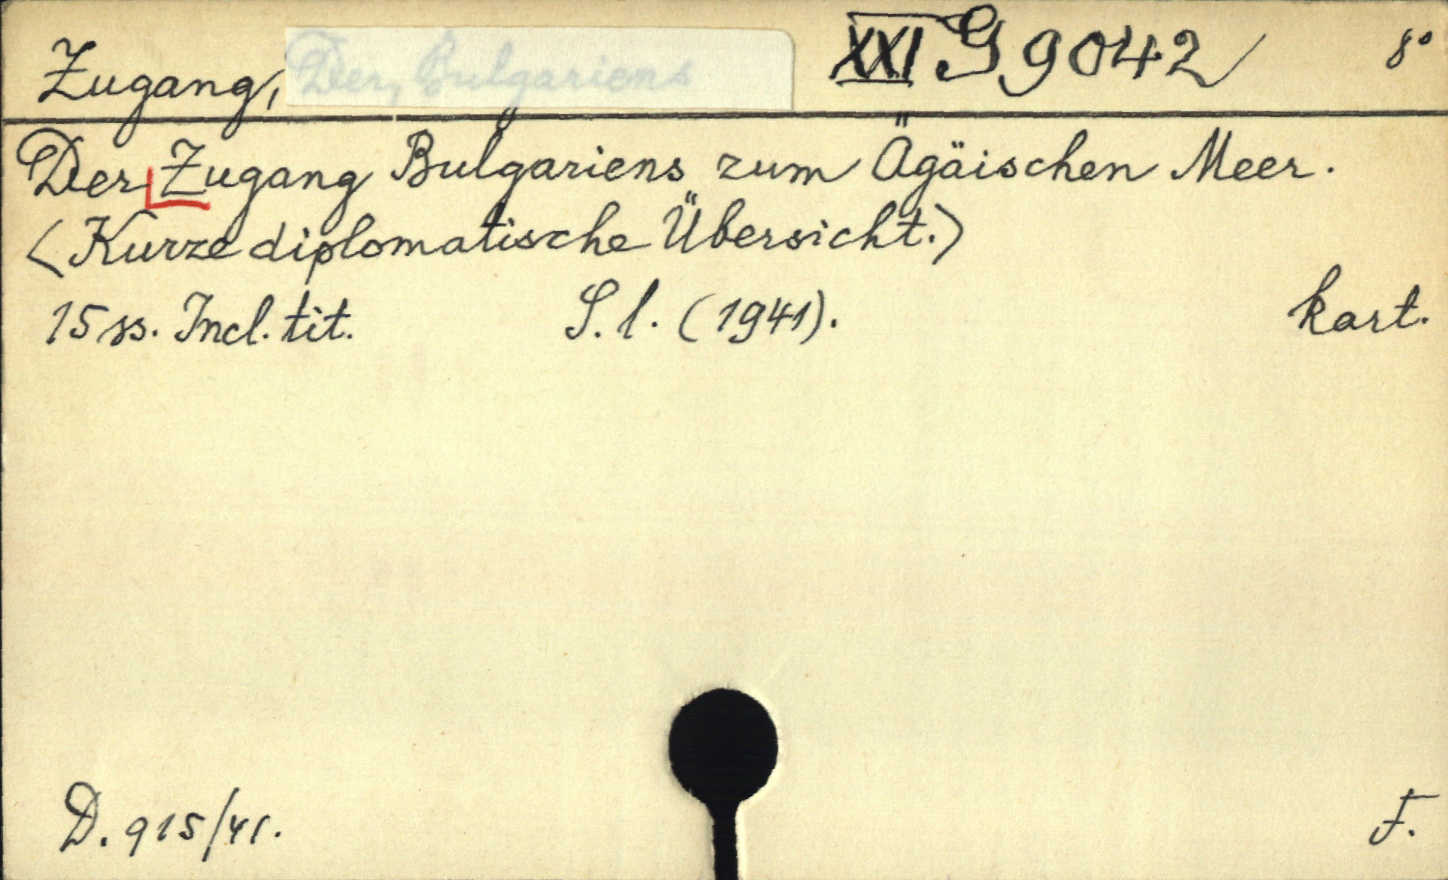 Zugang, Der, Bulgariens XXI G 9042 8°
Der Zugang Bulgariens zum Ägäischen Meer.
<Kurze diplomatische Übersicht.>
15 ss. Incl. tit. S. l. (1941). kart.
D. 915/41. F.